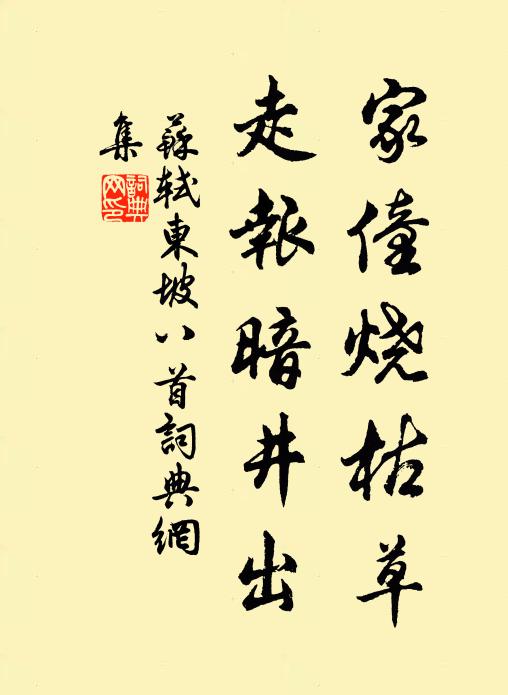 家僮烧枯草
走報暗井出
蘇轼東坡八首詞典網
集
詞典
网印